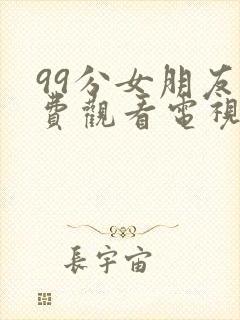 99分女朋友
費觀看電視
長宇宙